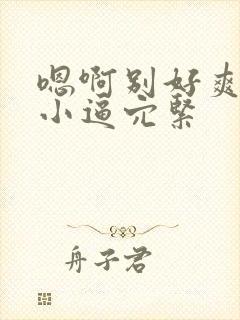 嗯啊别好爽
小逼穴紧
舟子君